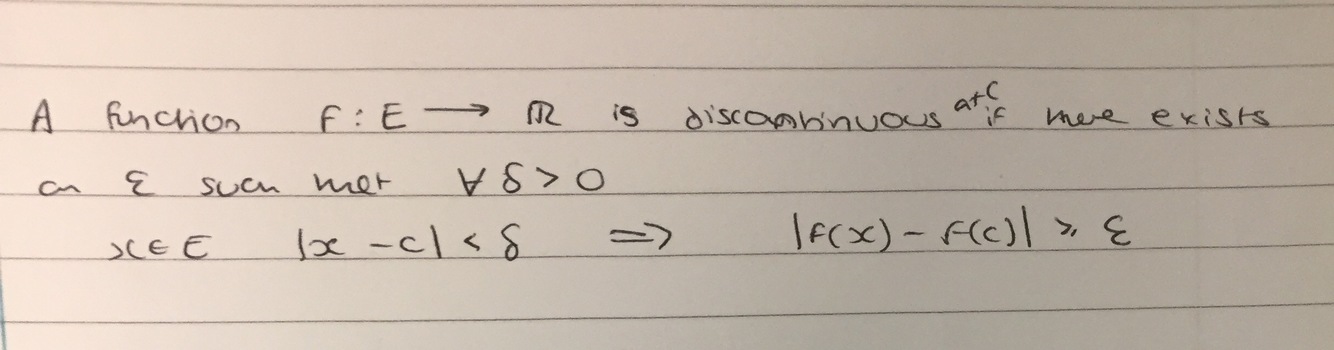 A function f : E → ℝ is discontinuous at c if there exists
an ε such that ∀ δ > 0
x ∈ E |x - c| < δ ⇒ |f(x) - f(c)| ⩾ ε